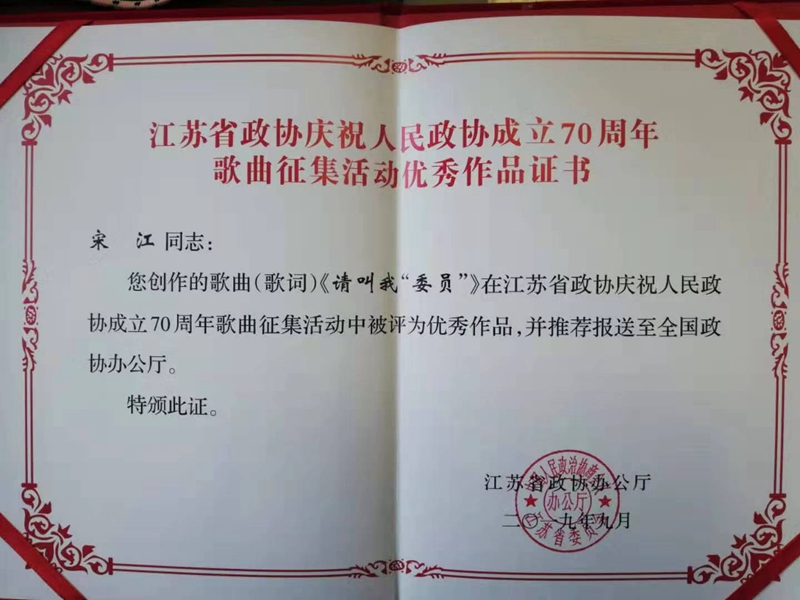 江苏省政协庆祝人民政协成立70周年
歌曲征集活动优秀作品证书
宋 江 同志：
您创作的歌曲(歌词)《请叫我“委员”》在江苏省政协庆祝人民政
协成立70周年歌曲征集活动中被评为优秀作品，并推荐报送至全国政
协办公厅。
特颁此证。
江苏省政协办公厅
二〇一九年九月
办公厅